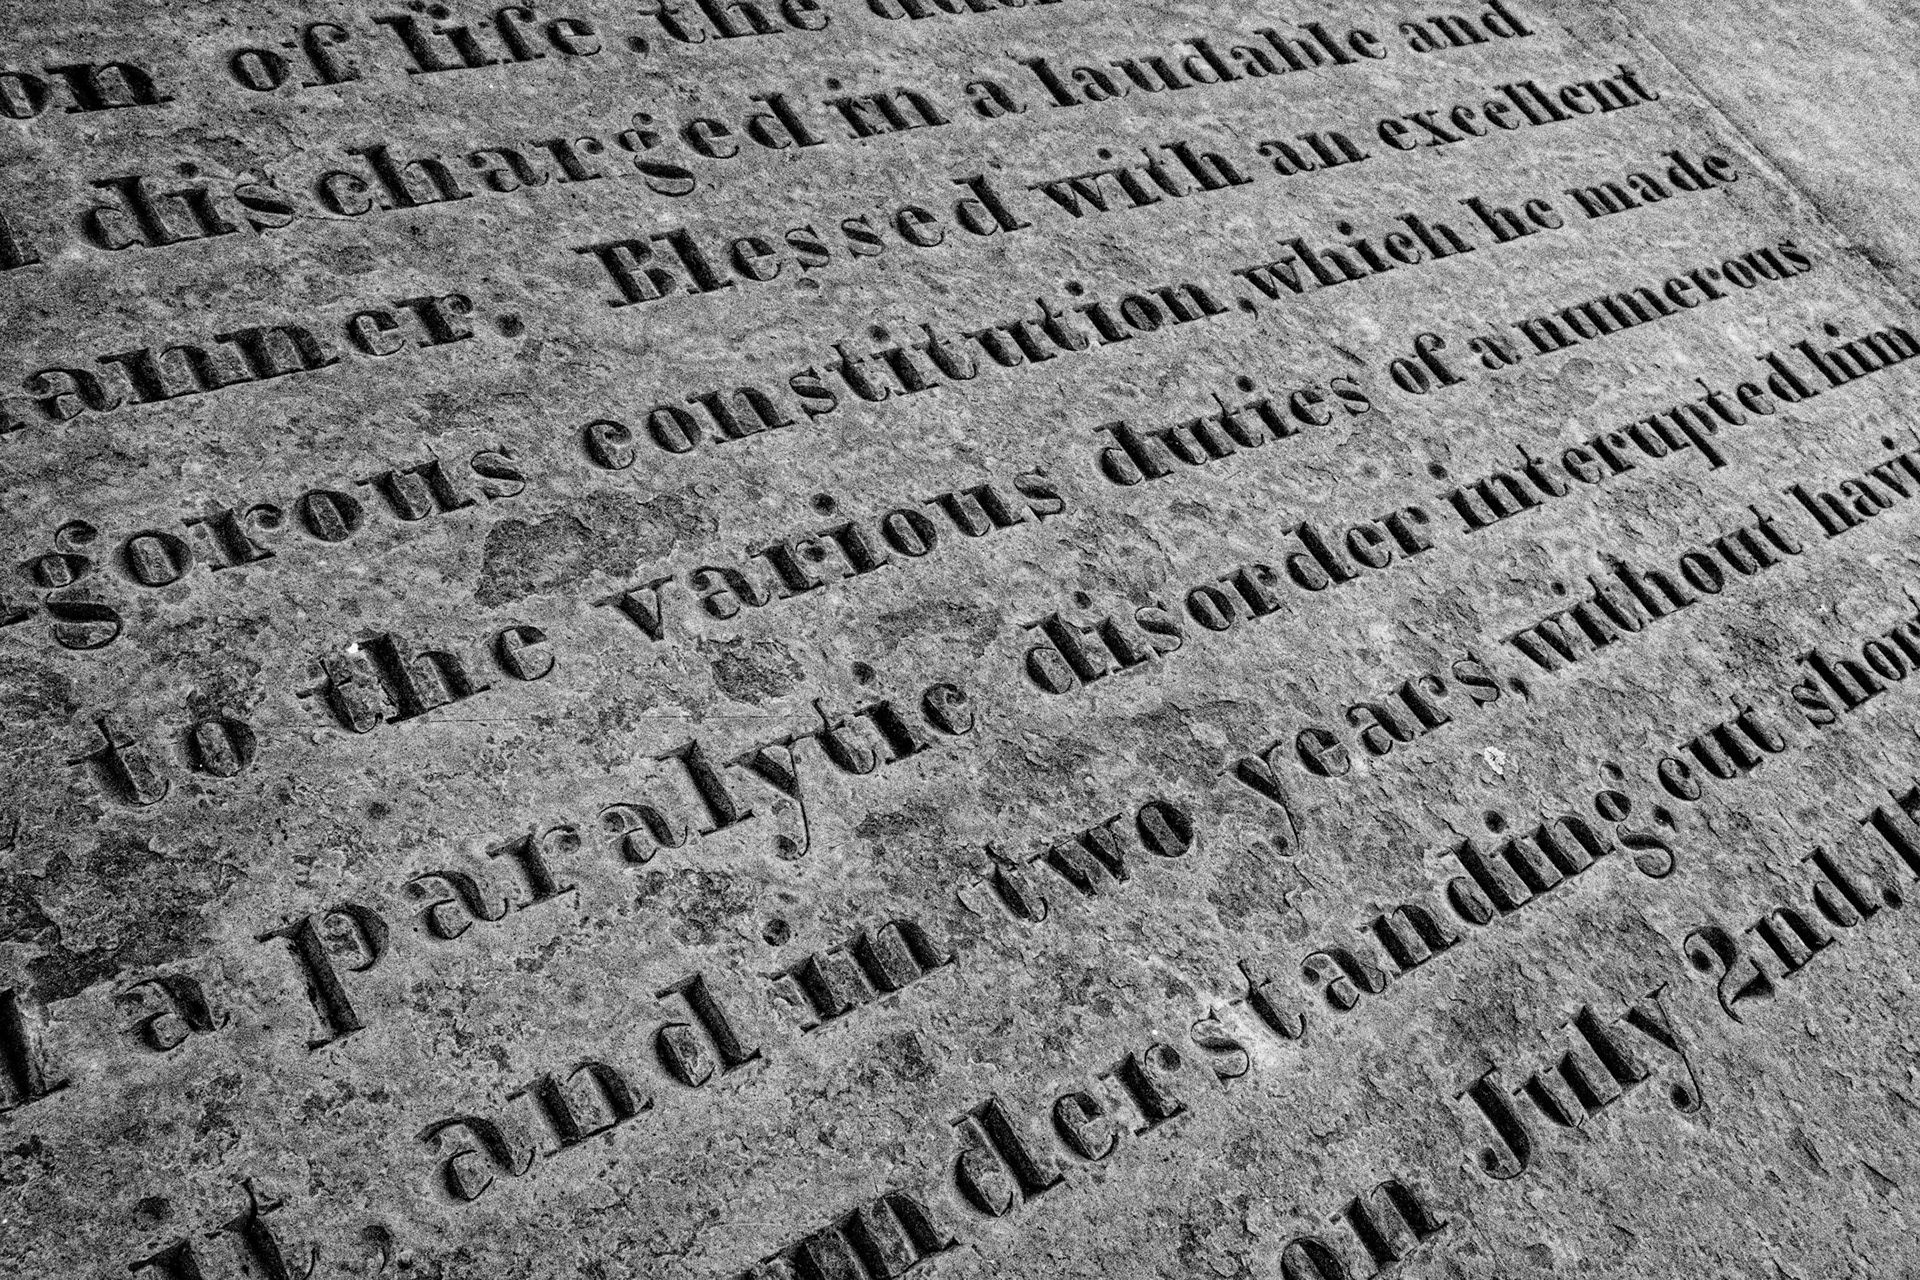 of life, the
discharged in a laudable and
anner. Blessed with an excellent
gorous constitution, which he made
to the various duties of a numerous
a paralytic disorder interupted him
it, and in two years, without havi
understanding, cut short
on July 2nd, 1